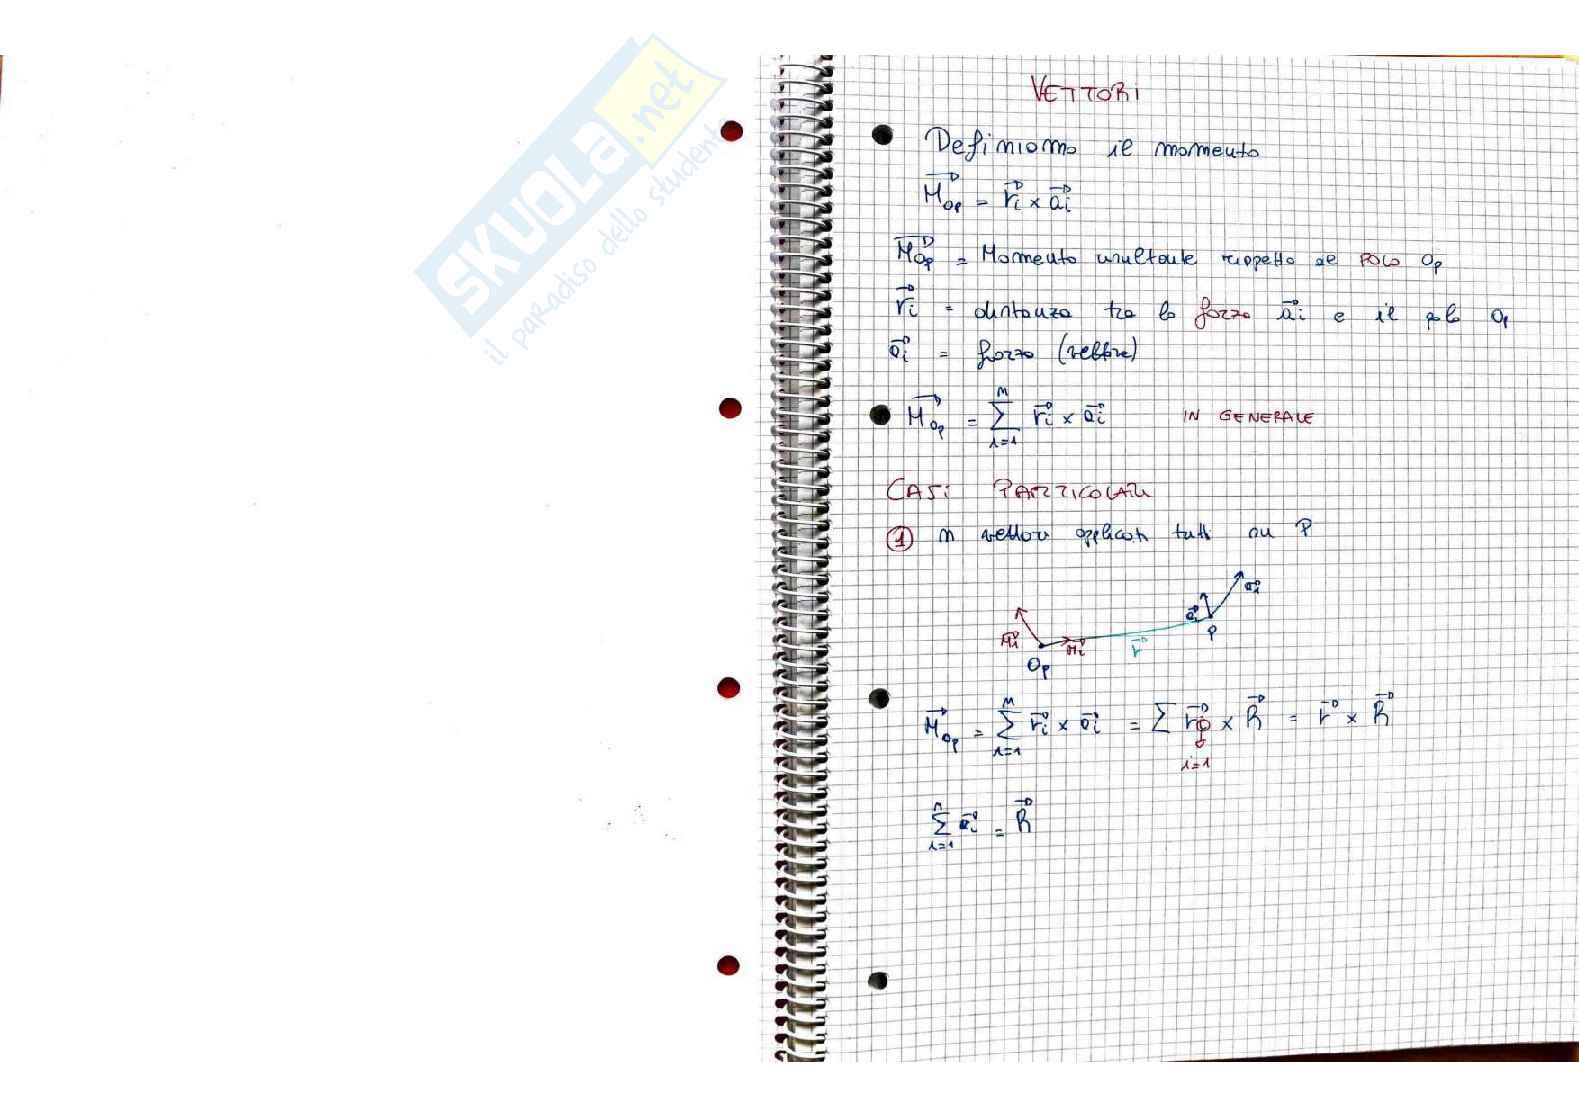 SKUOLA.net
il paradiso dello studente
VETTORI
Definiamo il momento
M⃗Op = r⃗i × a⃗i
M⃗Op = Momento risultante rispetto al POLO Op
r⃗i = distanza tra la forza a⃗i e il polo Op
a⃗i = forza (vettore)
M⃗Op = ∑ r⃗i × a⃗i IN GENERALE
n
i=1
CASi PARTICOLARi
① n vettori applicati tutti su P
a⃗i
a⃗i P
M⃗i r⃗
Op
M⃗Op = ∑ r⃗i × a⃗i = ∑ r⃗ × R⃗ = r⃗ × R⃗
n
i=1 i=1
n
∑ a⃗i = R⃗
i=1